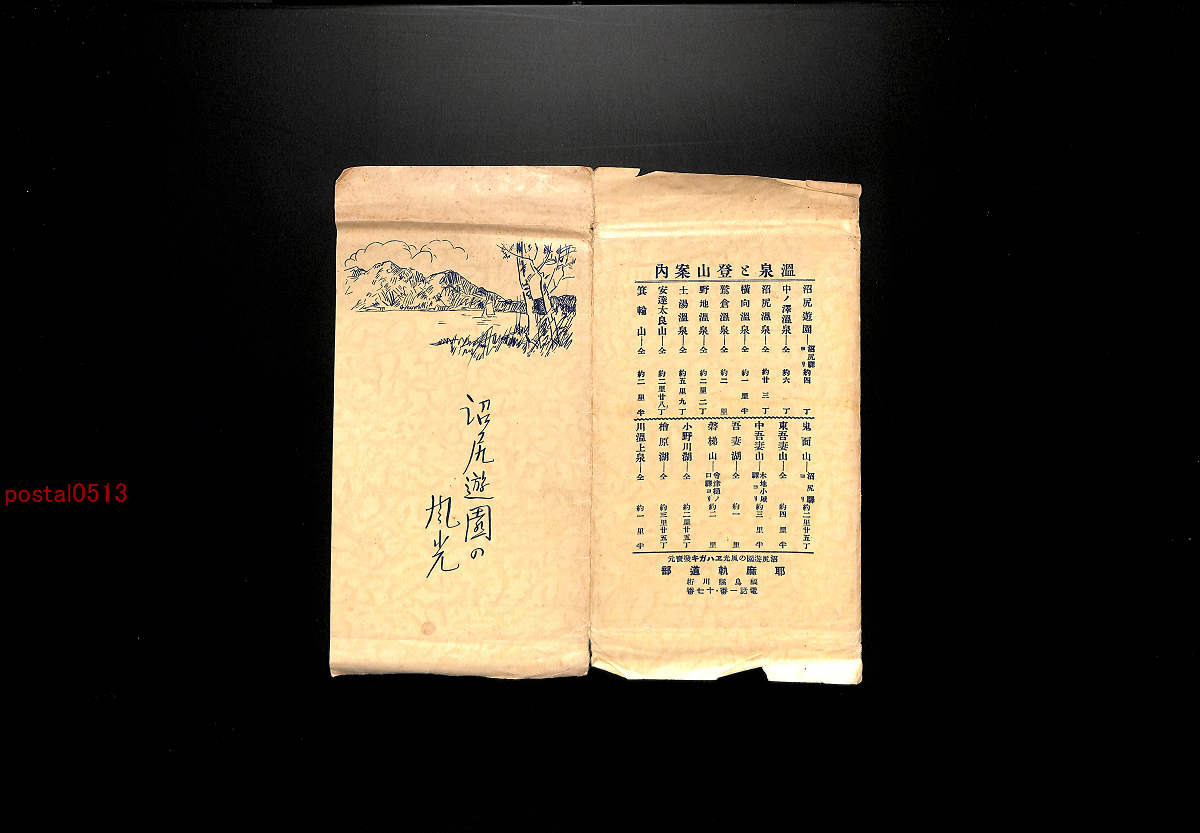 沼尻遊園の
風光
温泉と登山案内
沼尻遊園―沼尻驛ヨリ 約四丁
中ノ澤温泉―仝 約六丁
沼尻温泉―仝 約廿三丁
横向温泉―仝 約一里半
鷲倉温泉―仝 約二里
野地温泉―仝 約二里二丁
土湯温泉―仝 約五里九丁
安達太良山―仝 約二里廿八丁
箕輪山―仝 約二里半
鬼面山―沼尻驛ヨリ 約二里廿五丁
東吾妻山―仝 約四里半
中吾妻山―木地小屋驛ヨリ 約三里半
吾妻湖―仝 約一里
磐梯山―會津樋ノ口驛ヨリ 約二里
小野川湖―仝 約二里廿五丁
檜原湖―仝 約三里廿五丁
川上温泉―仝 約一里半
沼尻遊園の風光ヱハガキ發賣元
耶麻軌道部
福島縣川桁
電話一番・十七番
postal0513